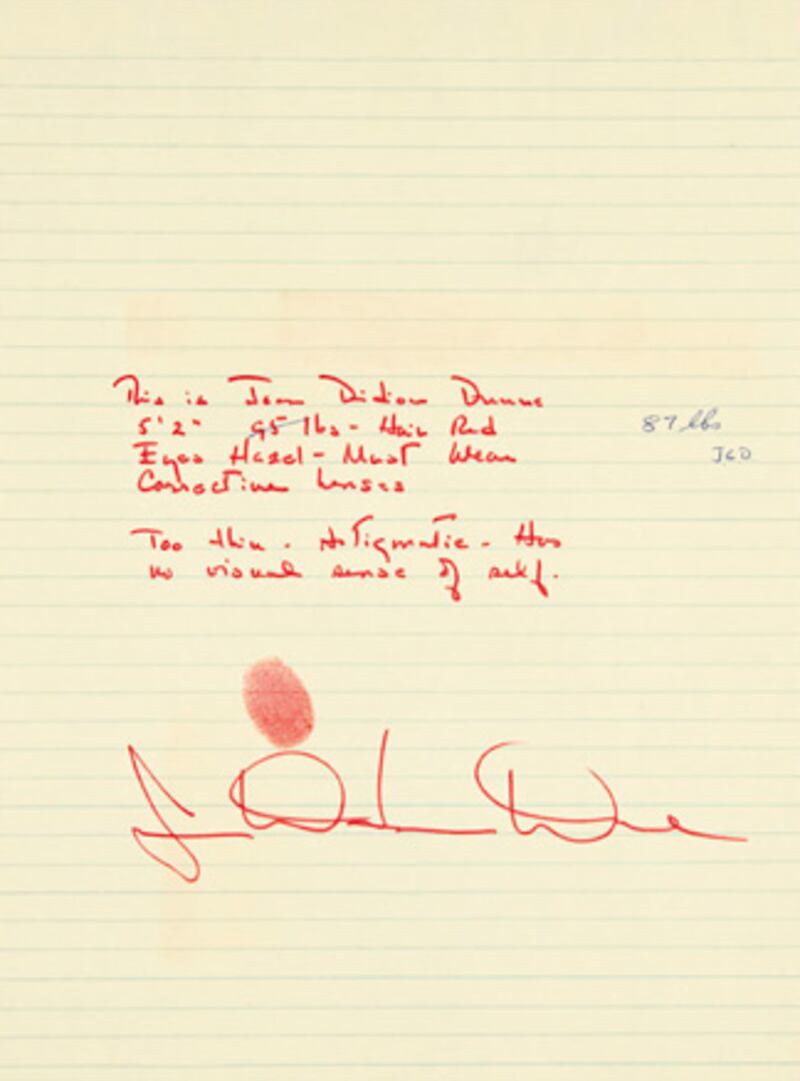 This is Joan Didion Dunne
5'2" 95 lbs - Hair Red
87 lbs
Eyes Hazel - Must Wear
JGD
Corrective Lenses
Too thin. Astigmatic. Has
no visual sense of self.
Joan Didion Dunne